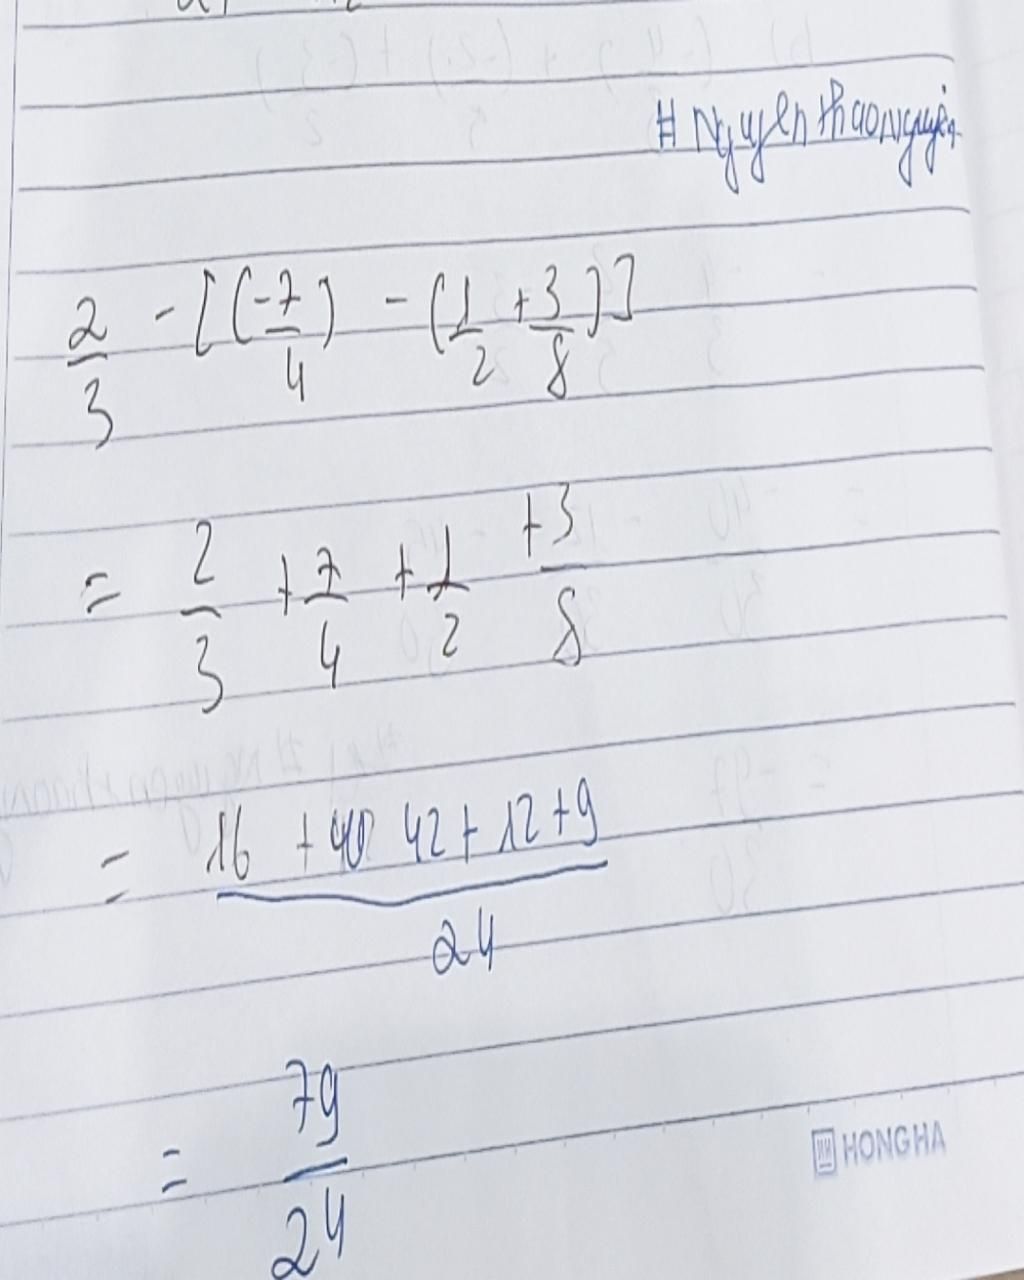 # Nguyenthaonguyên
2/3 - [(-7/4) - (1/2 + 3/8)]
= 2/3 + 7/4 + 1/2 + 3/8
= 16 + 40 42 + 12 + 9 / 24
= 79/24
HONG HA